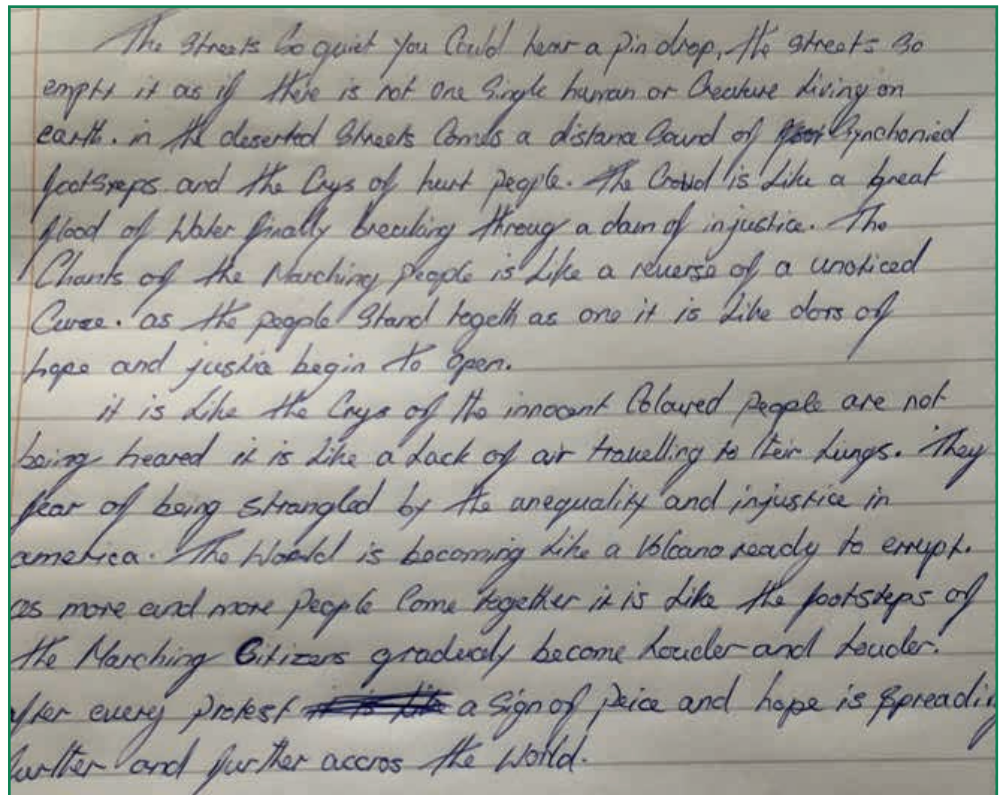 The streets so quiet you Could hear a pin drop, the streets so
empty it as if there is not one Single human or Creature living on
earth. in the deserted Streets Comes a distance Sound of Synchonied
footsteps and the Crys of hurt people. The Crowd is Like a great
flood of Water finally breaking throug a dam of injustice. The
Chants of the Marching people is Like a reverse of a unoticed
Curse. as the people Stand togeth as one it is Like dors of
hope and justice begin to open.
it is Like the Crys of the innocent Coloured people are not
being heared it is Like a Lack of air travelling to their Lungs. They
fear of being strangled by the anequality and injustice in
america. The World is becoming Like a Volcano ready to errupt.
as more and more people Come together it is Like the footsteps of
the Marching Citizens gradualy become Louder and Louder.
After every protest a Sign of peice and hope is spreading
further and further accros the World.